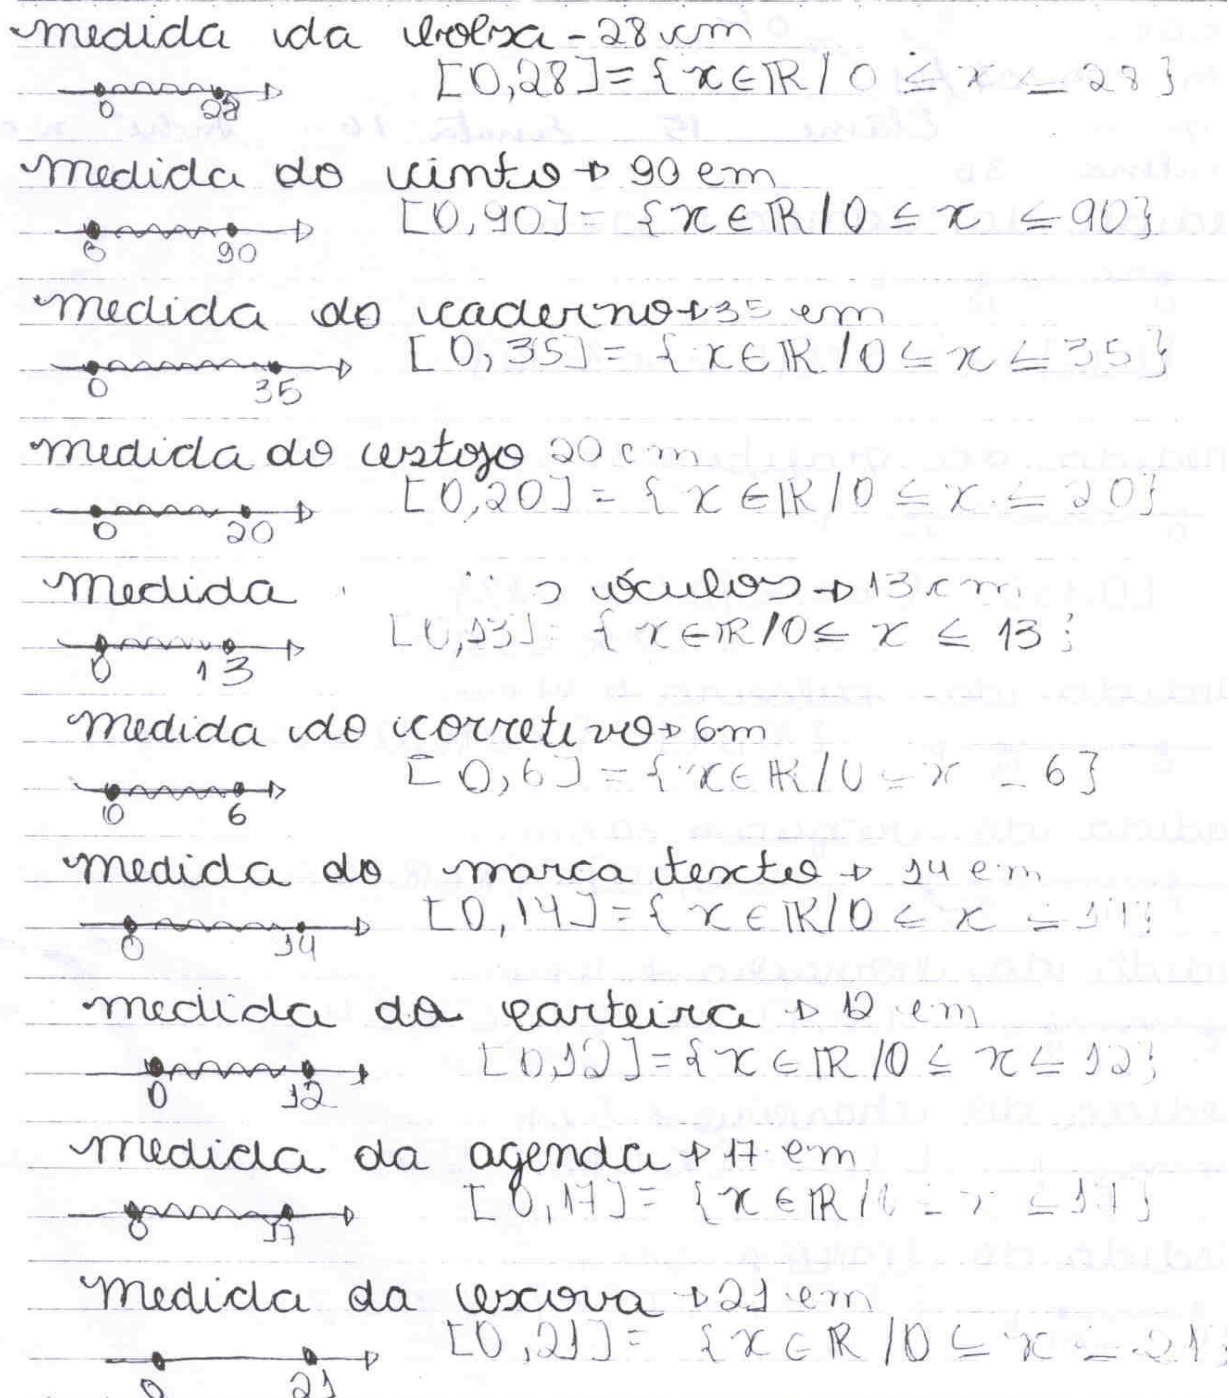 medida da bolsa - 28 cm
[0,28] = {x ∈ ℝ / 0 ≤ x ≤ 28}
0 28
medida do cinto → 90 cm
[0,90] = {x ∈ ℝ / 0 ≤ x ≤ 90}
0 90
medida do caderno → 35 cm
[0,35] = {x ∈ ℝ / 0 ≤ x ≤ 35}
0 35
medida do estojo 20 cm
[0,20] = {x ∈ ℝ / 0 ≤ x ≤ 20}
0 20
medida óculos → 13 cm
[0,13] = {x ∈ ℝ / 0 ≤ x ≤ 13}
0 13
medida do corretivo → 6m
[0,6] = {x ∈ ℝ / 0 ≤ x ≤ 6}
0 6
medida do marca texto → 14 cm
[0,14] = {x ∈ ℝ / 0 ≤ x ≤ 14}
0 14
medida da carteira → 12 cm
[0,12] = {x ∈ ℝ / 0 ≤ x ≤ 12}
0 12
medida da agenda → 17 cm
[0,17] = {x ∈ ℝ / 0 ≤ x ≤ 17}
0 17
medida da escova → 21 cm
[0,21] = {x ∈ ℝ / 0 ≤ x ≤ 21}
0 21